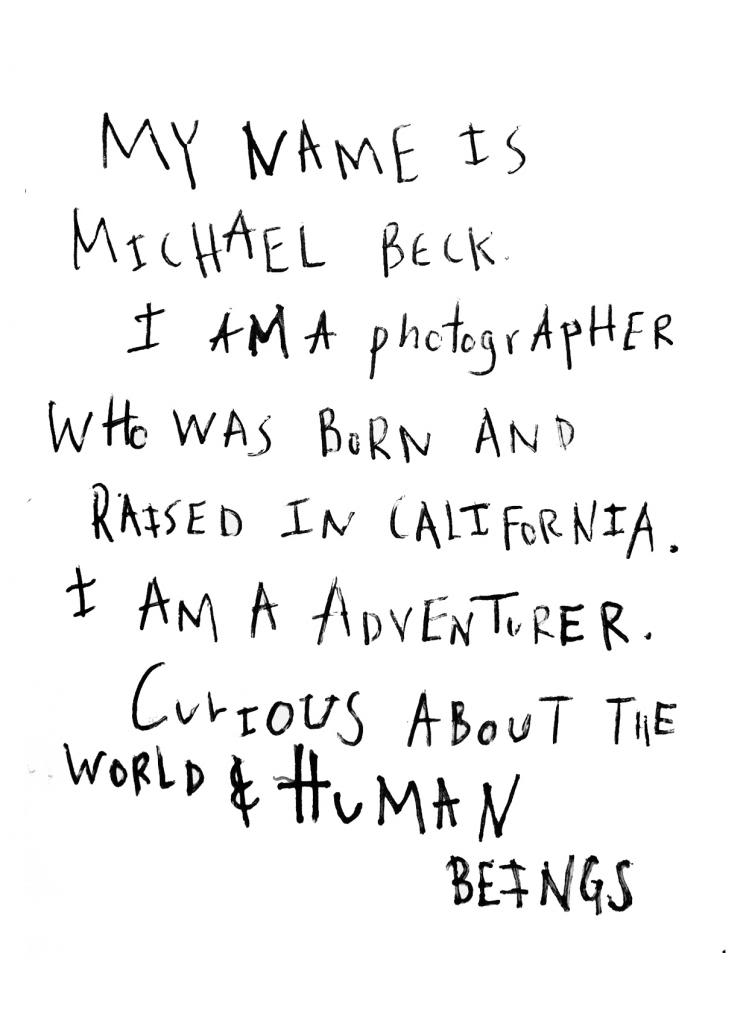 MY NAME IS
MICHAEL BECK.
I AM A photogrAPHER
WHo WAS BoRN AND
RAISED IN CALIFoRNIA.
I AM A ADVENTuRER.
CurIOUS ABOUT THE
WORLD & HuMAN
BEINGS